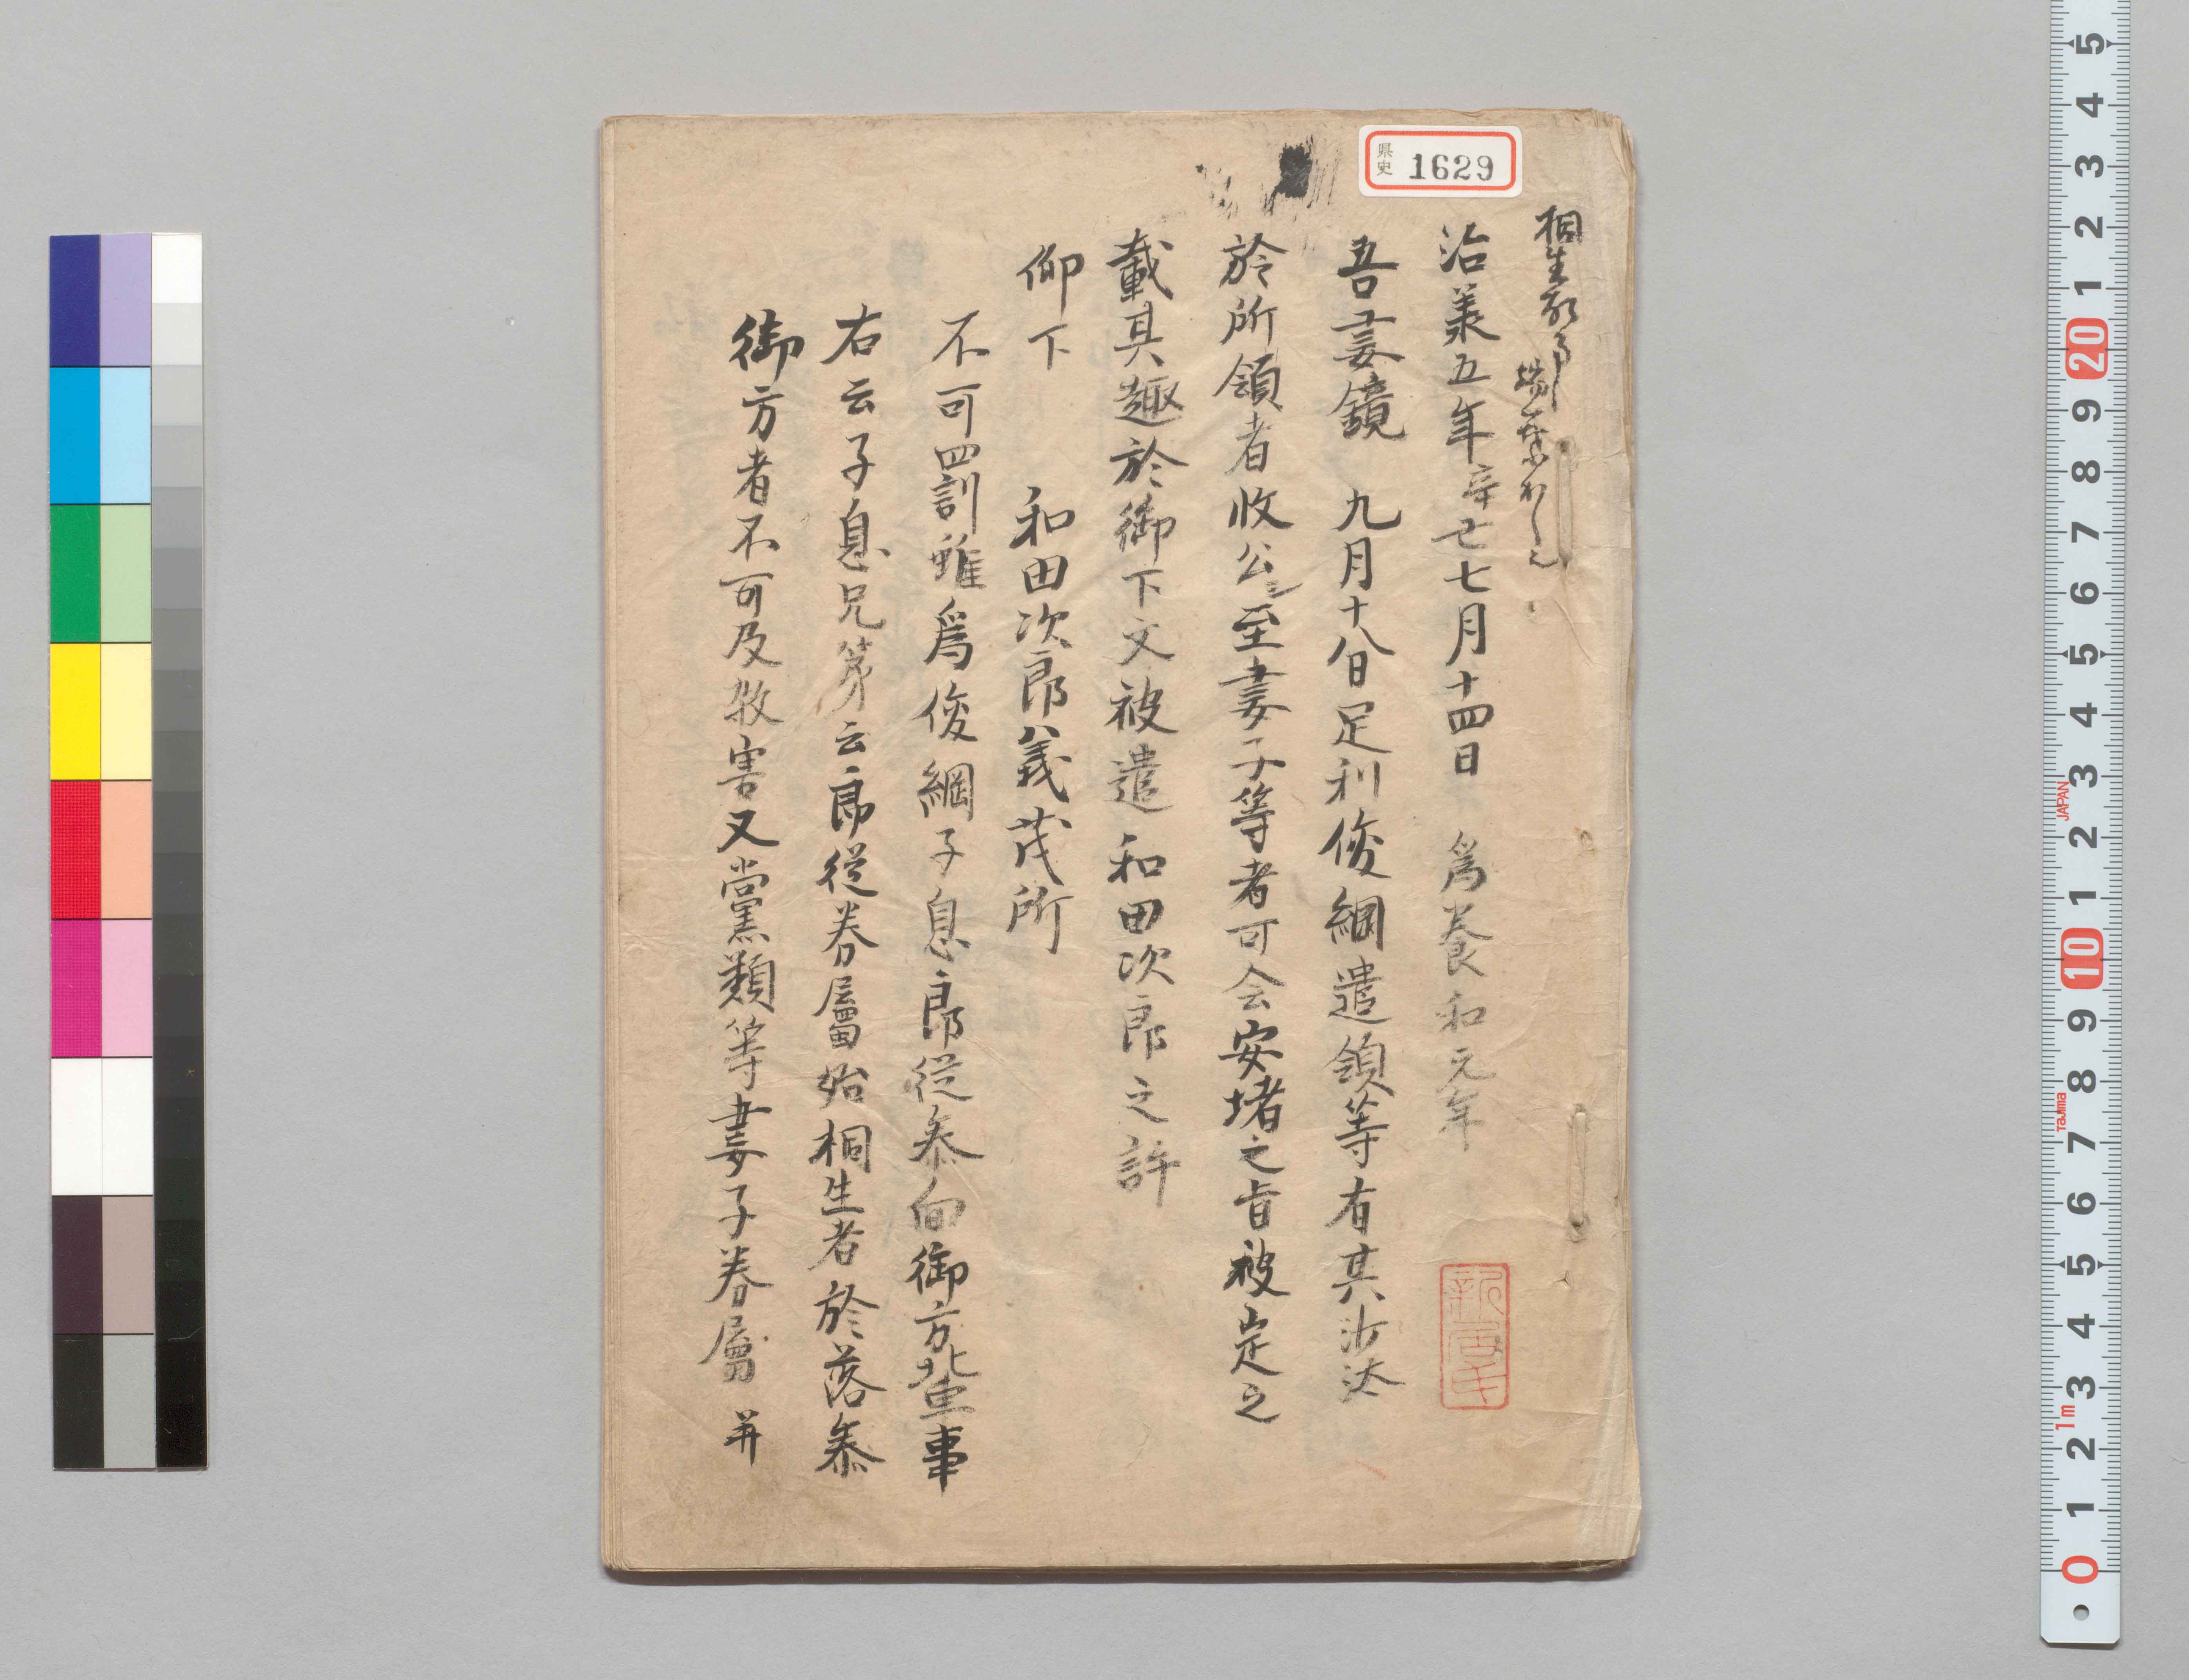 県史 1629
桐生
治業五年辛丑七月十四日 為養和元年
新居氏
吾妻鏡 九月十八日足利俊綱遣領等有其沙汰
於所領者收公至妻子等者可会安堵之旨被定之
載其趣於御下文被遣和田次郎之許
仰下 和田次郎義茂所
不可罰雖為俊綱子息郎従参向御方輩事
右云子息兄弟云郎従眷属始桐生者於落参
御方者不可及殺害又黨類等妻子眷属并